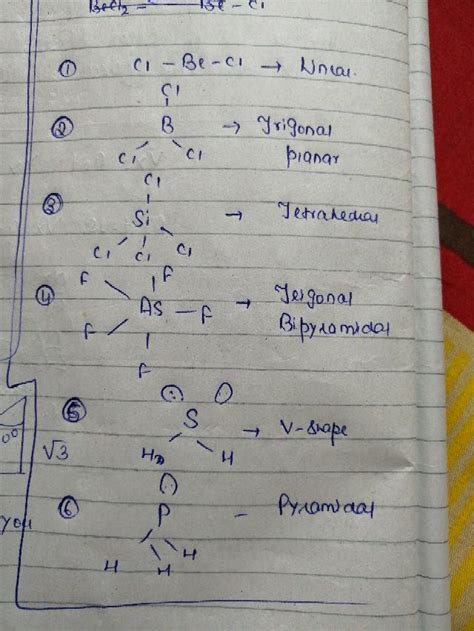 BeCl2 Be - Cl
① Cl - Be - Cl → Linear.
Cl
② B → Trigonal
Cl Cl planar
Cl
③ Si → Tetrahedral
Cl Cl Cl
F F
④ AS - F → Trigonal
F Bipyramidal
F
⑤ S → V-shape
√3 H H
⑥ P - Pyramidal
you
H H H